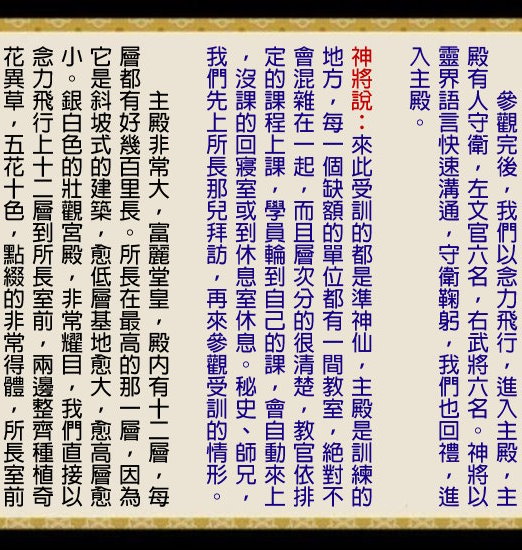 參觀完後，我們以念力飛行，進入主殿，主
殿有人守衛，左文官六名，右武將六名。神將以
靈界語言快速溝通，守衛鞠躬，我們也回禮，進
入主殿。
神將說：來此受訓的都是準神仙，主殿是訓練的
地方，每一個缺額的單位都有一間教室，絕對不
會混雜在一起，而且層次分的很清楚，教官依排
定的課程上課，學員輪到自己的課，會自動來上
，沒課的回寢室或到休息室休息。秘史、師兄，
我們先上所長那兒拜訪，再來參觀受訓的情形。
主殿非常大，富麗堂皇，殿內有十二層，每
層都有好幾百里長。所長在最高的那一層，因為
它是斜坡式的建築，愈低層基地愈大，愈高層愈
小。銀白色的壯觀宮殿，非常耀目，我們直接以
念力飛行上十二層到所長室前，兩邊整齊種植奇
花異草，五花十色，點綴的非常得體，所長室前